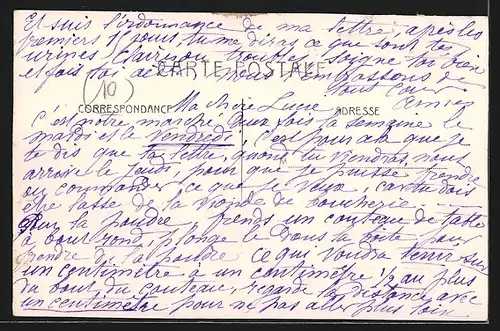 Et suis l'ordonnance de ma lettre, après les
premiers jours, tu me diras ce que sont tes
urines, claires ou troubles. Soigne toi bien
et fais toi
CARTE POSTALE
embrassons de
tout cœur
10
CORRESPONDANCE
ADRESSE
Ma chère Lucie
C'est notre marché deux fois la semaine le
mardi et le vendredi, c'est pour cela que je
te dis que ta lettre, quand tu viendras, nous
arrive le Jeudi, pour que je puisse prendre
ou commander ce que je veux, car tu dois
être lasse de la viande de boucherie
Pour la poudre prends un couteau de table
à bout rond, plonge le dans la boîte pour
prendre de la poudre ce qui voudra tenir sur
un centimètre à un centimètre 1/2 au plus
du bout du couteau, regarde la distance avec
un centimètre pour ne pas aller plus loin